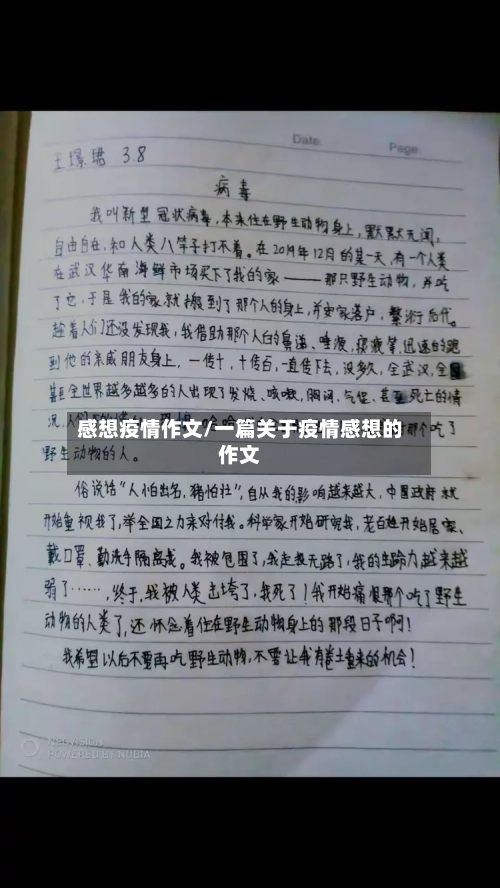 Date
Page
王璟珺 3.8
病毒
我叫新型冠状病毒,本来住在野生动物身上,默默无闻,
自由自在,和人类八竿子打不着。在2019年12月的某一天,有一个人类
在武汉华南海鲜市场买下了我的家——那只野生动物,并吃
了它,于是我的家就搬到了那个人的身上,并安家落户,繁衍后代。
趁着人们还没发现我,我借助那个人的鼻涕、唾液、痰液等,迅速的跑
到他的亲戚朋友身上,一传十,十传百,一直传下去,没多久,全武汉,全国
甚至全世界越多越多的人出现了发烧、咳嗽,胸闷,气促,甚至死亡的情
况,人们
那个吃了
感想疫情作文/一篇关于疫情感想的
作文
野生动物的人。
俗说话“人怕出名,猪怕壮”,自从我的影响越来越大,中国政府就
开始重视我了,举全国之力来对付我。科学家开始研究我,老百姓开始居家、
戴口罩、勤洗手隔离我。我被包围了,我走投无路了,我的生命力越来越
弱了……,终于,我被人类击垮了,我死了!我开始痛恨那个吃了野生
动物的人类了,还怀念着住在野生动物身上的那段日子啊!
我希望以后不要再吃野生动物,不要让我有卷土重来的机会!
POWERED BY NUBIA